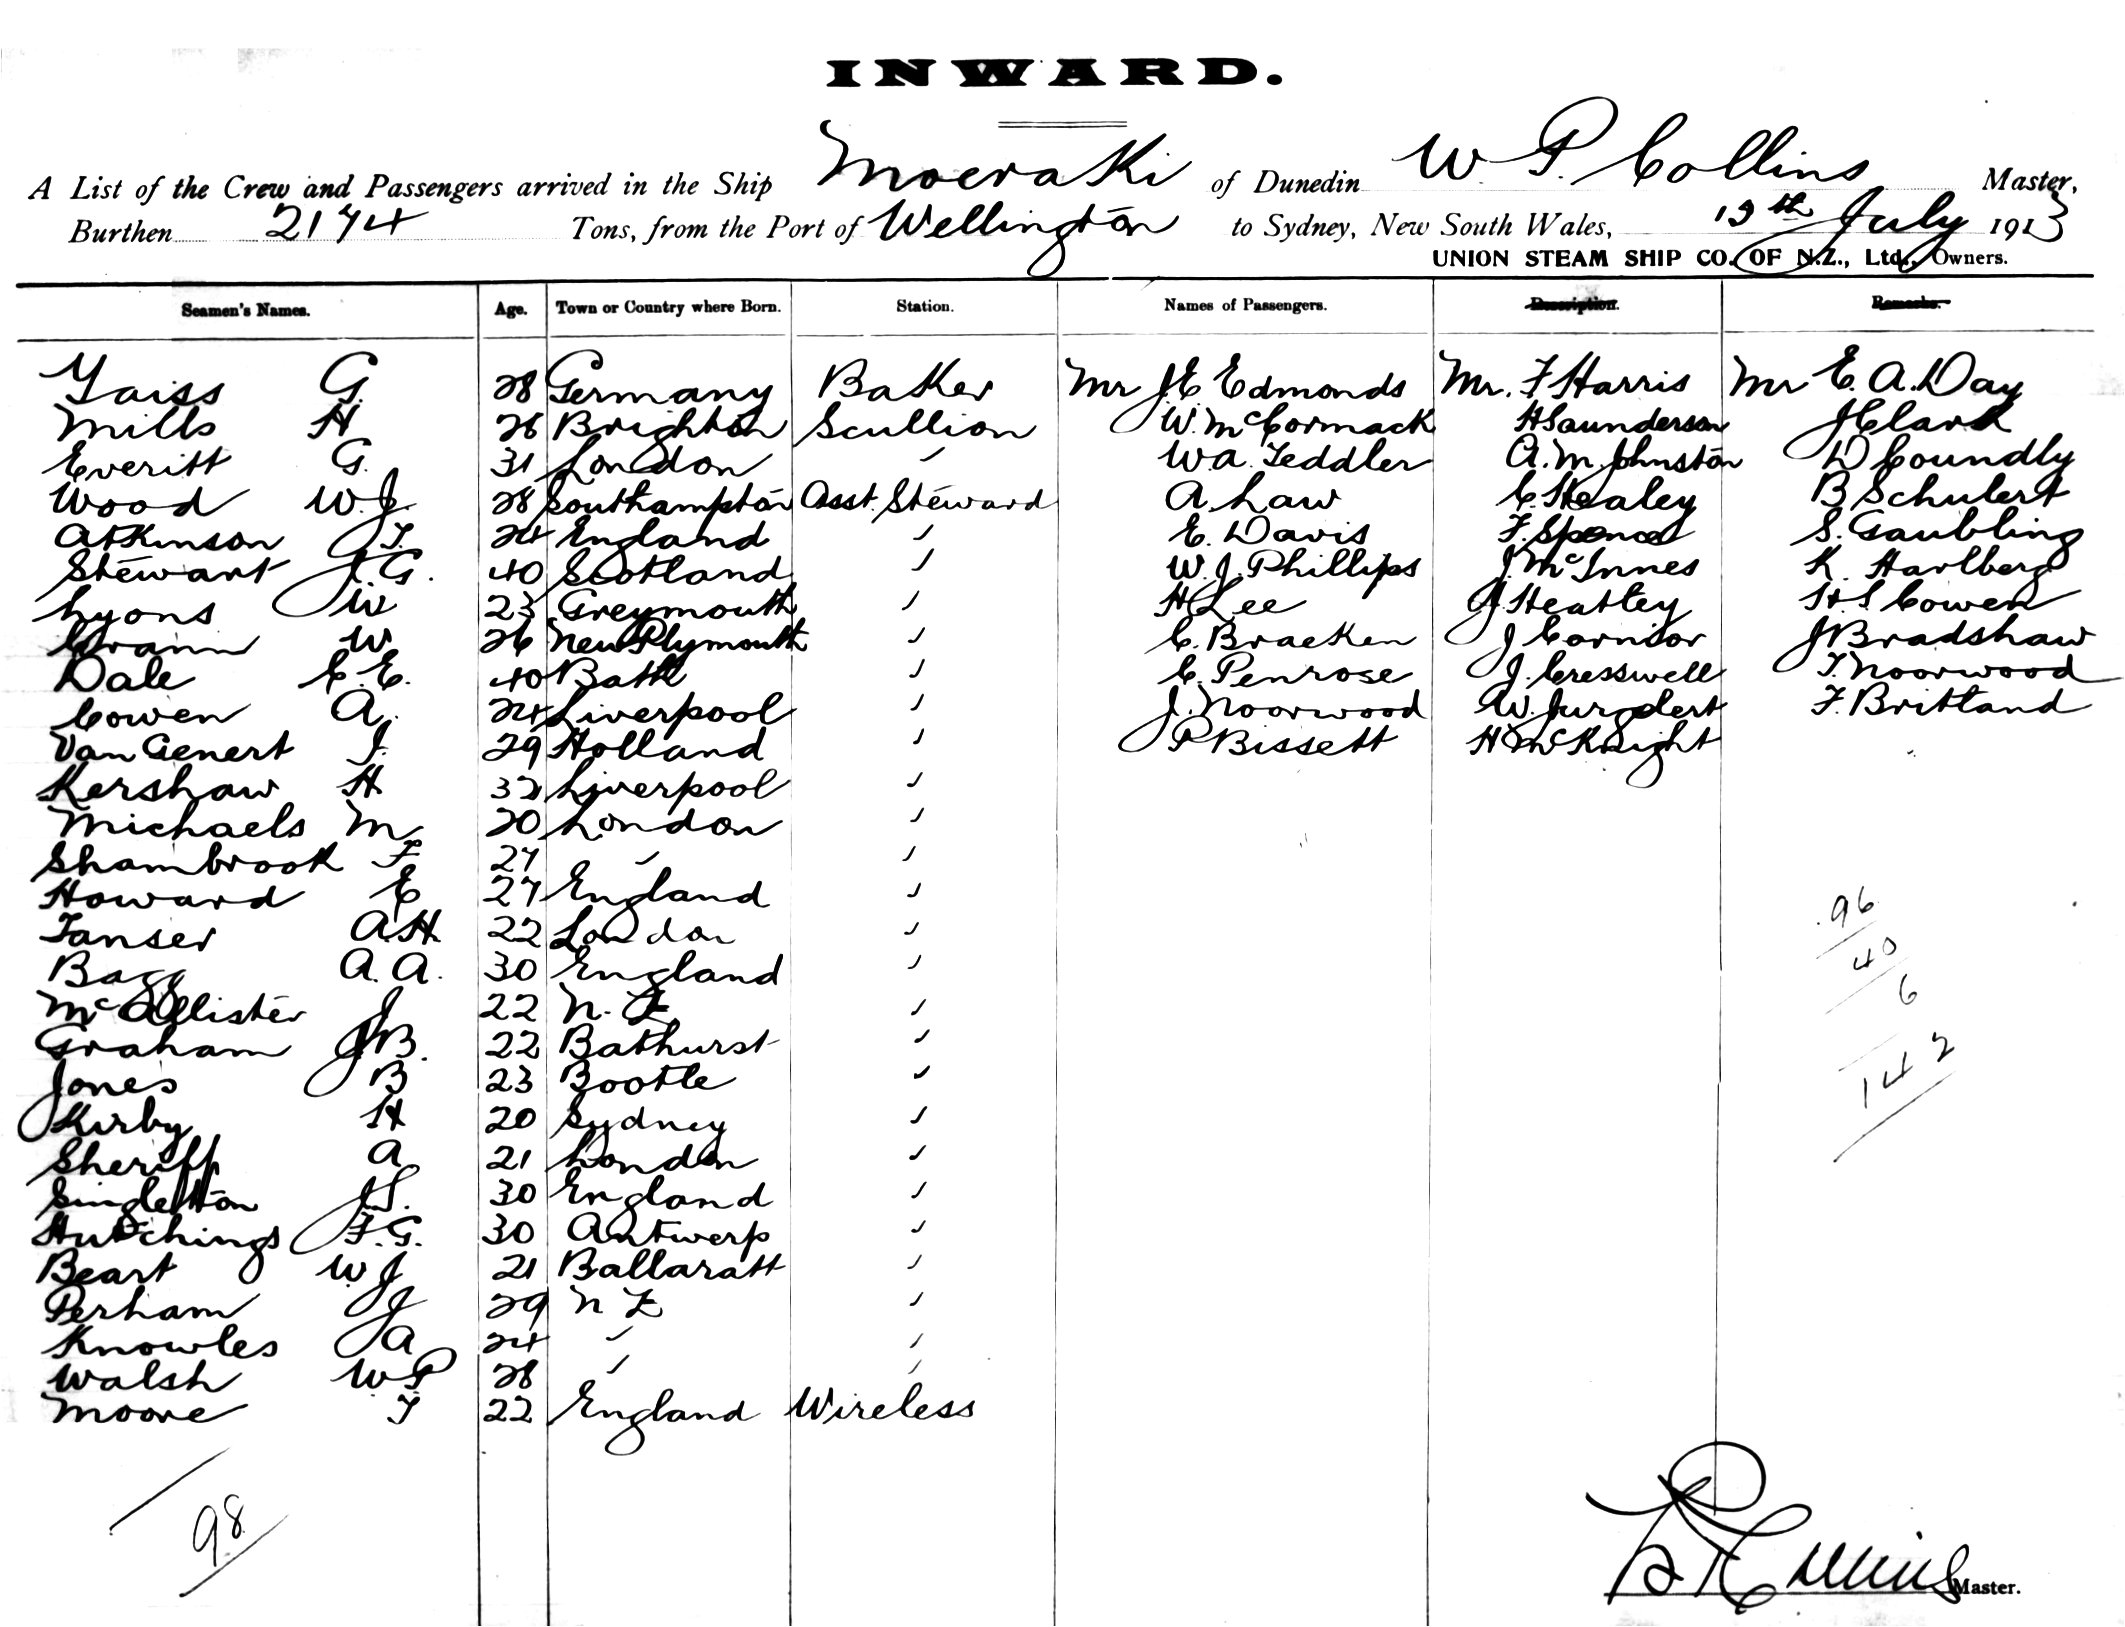 INWARD.
A List of the Crew and Passengers arrived in the Ship Moeraki of Dunedin W. P. Collins Master,
Burthen 2174 Tons, from the Port of Wellington to Sydney, New South Wales, July 1913
UNION STEAM SHIP CO. OF N.Z., Ltd., Owners.
Seamen's Names. Age. Town or Country where Born. Station. Names of Passengers. Description. Remarks.
Yaiss G. 28 Germany Baker Mr J E Edmonds Mr. F Harris Mr E. A. Day
Mills H 26 Brighton Scullion W. McCormack H Saunderson J Clark
Everitt G. 31 London " W A. Teddler A. M. Johnston D Coundly
Wood W. J. 28 Southampton Asst. Steward A. Law C. Healey B Schulert
Atkinson T. 24 England " E. Davis F. Spence S. Gaubling
Stewart J. G. 40 Scotland " W. J. Phillips J. McInnes K. Harlberg
Lyons W 23 Greymouth " H Lee J. Heatley H. S Cowen
Crann W 26 New Plymouth " C. Bracken J Cornior J Bradshaw
Dale E. E. 40 Bath " C. Penrose J. Cresswell T. Noorwood
Cowen A. 24 Liverpool " J. Noorwood W. F. Britland
Van Genert J. 29 Holland " P Bissett H McKnight
Kershaw H 32 Liverpool "
Michaels M 20 London "
Shambrook F 27 " "
Howard E 27 England "
Tanser A. H. 22 London "
Bagg A. A. 30 England "
McAllister J 22 N. Z "
Graham J B. 22 Bathurst "
Jones B 23 Bootle "
Kirby H 20 Sydney "
Sheriff A 21 London "
Singleton J S. 30 England "
Hutchings F. G. 30 Antwerp "
Beart W J 21 Ballaratt "
Perham J 29 N Z "
Knowles A 24 " "
Walsh W P 28 " "
Moore T 22 England Wireless
96
40
6
142
98
Master.